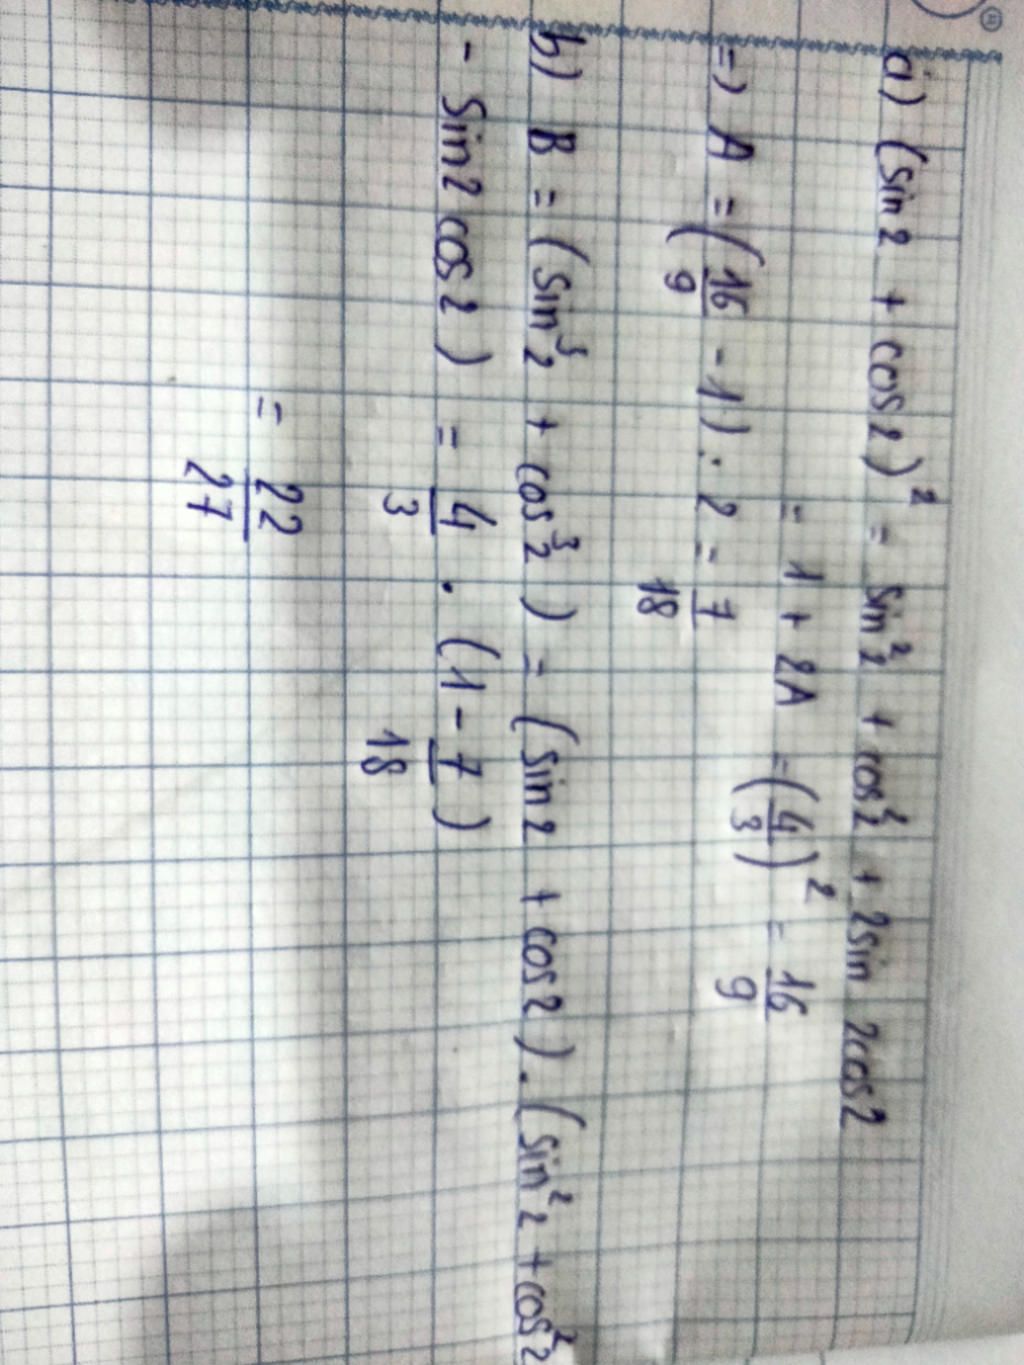 a) (sin 2 + cos 2)² = sin² 2 + cos² 2 + 2 sin 2 cos 2
= 1 + 2A = (4/3)² = 16/9
=> A = (16/9 - 1) : 2 = 7/18
b) B = (sin³ 2 + cos³ 2) = (sin 2 + cos 2) . (sin² 2 + cos² 2
- sin 2 cos 2) = 4/3 . (1 - 7/18)
= 22/27